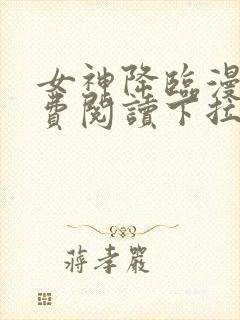 女神降臨漫
費閱讀下拉
蔣孝嚴